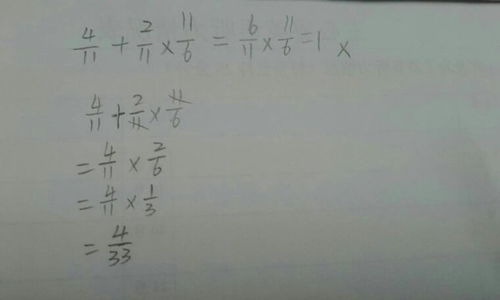 4/11 + 2/11 × 11/6 = 6/11 × 11/6 = 1 ×
4/11 + 2/11 × 11/6
= 4/11 × 2/6
= 4/11 × 1/3
= 4/33